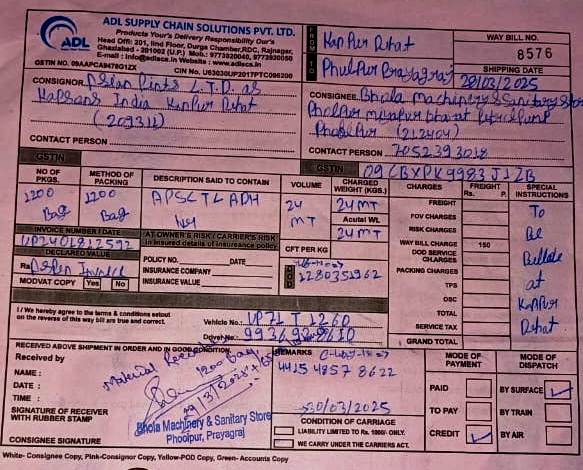 ADL SUPPLY CHAIN SOLUTIONS PVT. LTD.
Products Your's Delivery Responsibility Our's
Head Off: 201, IInd Floor, Durga Chamber,RDC, Rajnagar,
Ghaziabad - 201002 (U.P.) Mob.: 9773920040, 9772920050
E-mail : info@adlscs.in Website : www.adlscs.in
ADL
GSTIN NO. 09AAPCA9478G1ZX
CIN No. U63030UP2017PTC096200
FROM
Kanpur Dehat
TO
Phulpur Prayagraj
WAY BILL NO.
8576
SHIPPING DATE
28/03/2025
CONSIGNOR
L.T.D. as
Kapsons India Kanpur Dehat
(209311)
CONTACT PERSON
GSTIN
CONSIGNEE Bhola Machinery & Sanitary Store
Phulpur bharat petrol pump
Phulpur (212404)
CONTACT PERSON 7052393028
GSTIN 09CBXPK9983J1ZB
NO OF PKGS.
METHOD OF PACKING
DESCRIPTION SAID TO CONTAIN
VOLUME
CHARGED WEIGHT (KGS.)
CHARGES
FREIGHT
Rs. P.
SPECIAL INSTRUCTIONS
1200
Bag
1200
Bag
APSCTLADH
24
MT
24 MT
Acutal Wt.
24 MT
CFT PER KG
FREIGHT
FOV CHARGES
RISK CHARGES
WAY BILL CHARGE 150
DOD SERVICE CHARGES
PACKING CHARGES
TPS
OSC
TOTAL
SERVICE TAX
GRAND TOTAL
To
Be
at
Kanpur
Dehat
INVOICE NUMBER / DATE
UP2401812592
DECLARED VALUE
Rs.
MODVAT COPY Yes No
AT OWNER'S RISK / CARRIER'S RISK
In insured details of insurance policy
POLICY NO. DATE
INSURANCE COMPANY
INSURANCE VALUE
1280351962
I / We hereby agree to the terms & conditions setout
on the reverse of this way bill are true and correct.
Vehicle No.: UP71 T 1260
Driver No.:
RECEIVED ABOVE SHIPMENT IN ORDER AND IN GOOD CONDITION
Received by
NAME :
DATE :
TIME :
SIGNATURE OF RECEIVER
WITH RUBBER STAMP
CONSIGNEE SIGNATURE
Material Received
1200 Bag
29/3/2025
Bhola Machinery & Sanitary Store
Phoolpur, Prayagraj
REMARKS
4415 4857 8622
30/03/2025
CONDITION OF CARRIAGE
LIABILITY LIMITED TO Rs. 1000/- ONLY.
WE CARRY UNDER THE CARRIERS ACT.
MODE OF PAYMENT
PAID
TO PAY
CREDIT
MODE OF DISPATCH
BY SURFACE
BY TRAIN
BY AIR
White- Consignee Copy, Pink-Consignor Copy, Yellow-POD Copy, Green- Accounts Copy